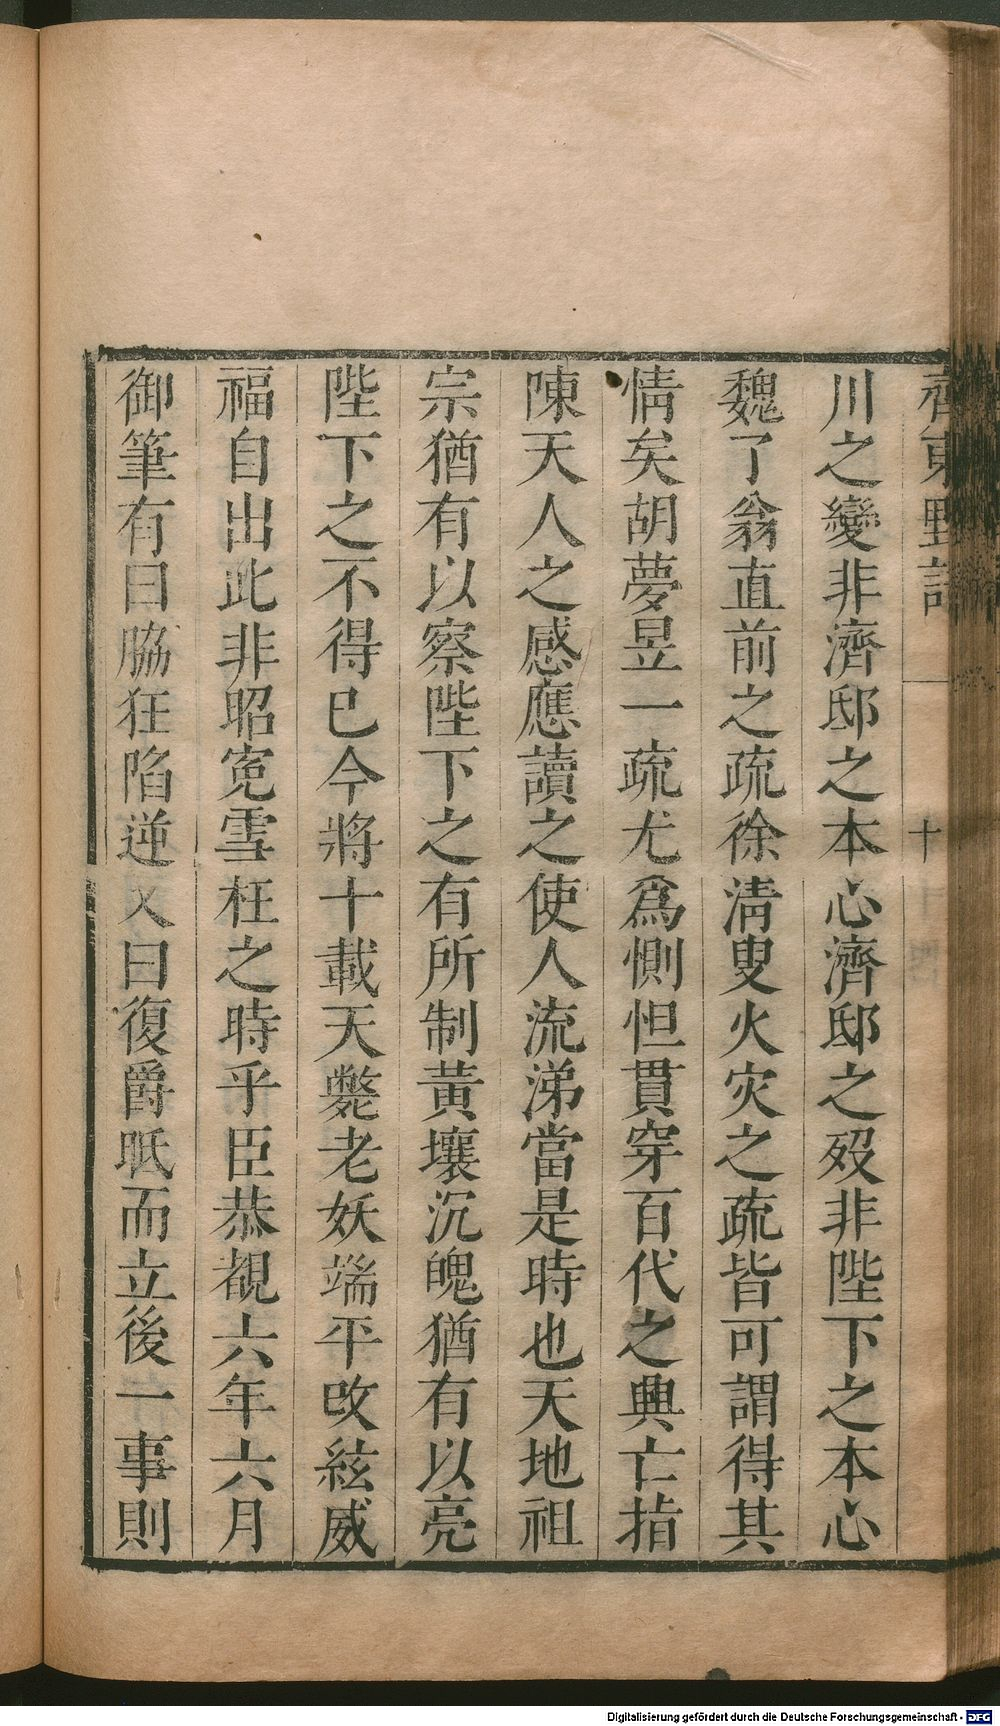 齊東野語
十
川之變非濟邸之本心濟邸之殁非陛下之本心
魏了翁直前之疏徐清叟火灾之疏皆可謂得其
情矣胡夢昱一疏尤爲惻怛貫穿百代之興亡指
陳天人之感應讀之使人流涕當是時也天地祖
宗猶有以察陛下之有所制黃壤沉魄猶有以亮
陛下之不得已今將十載天斃老妖端平改絃威
福自出此非昭寃雪枉之時乎臣恭覩六年六月
御筆有曰脇狂陷逆又曰復爵呧而立後一事則
Digitalisierung gefördert durch die Deutsche Forschungsgemeinschaft - DFG